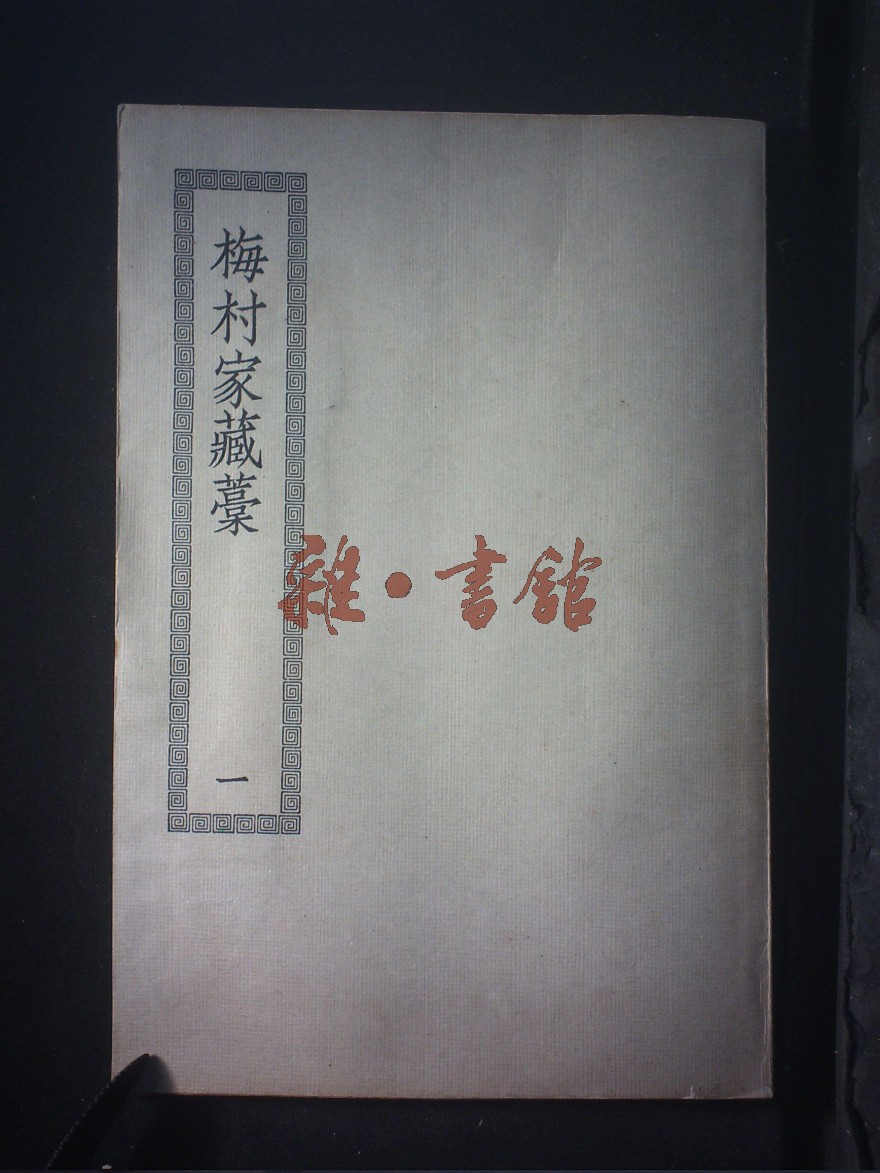 梅村家藏藁
一
雜·書館